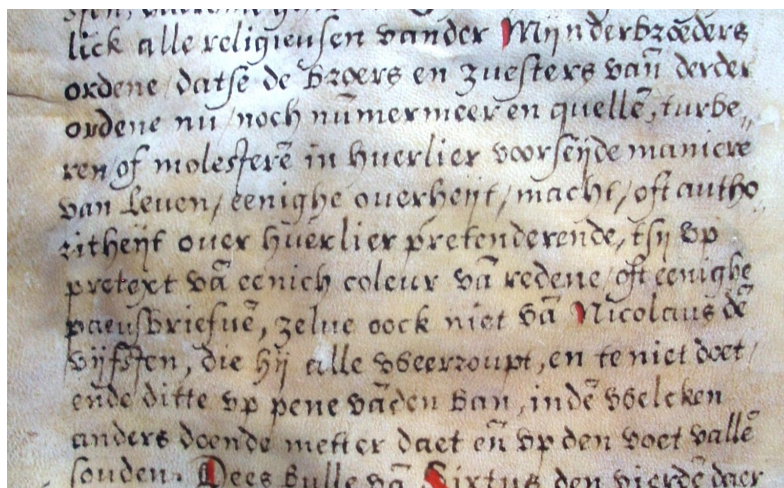 lick alle religieusen vander Mynderbroeders
ordene / datse de broers en zuesters van̄ derder
ordene nu / noch nūmermeer en quellē, turbe„
ren / of molesterē in huerlier voorseijde maniere
van Leuen / eenighe ouerheijt / macht / oft autho„
ritheijt ouer huerlier pretenderende, tsij vp
pretext vā eenich coleur vā redene / oft eenighe
paeusbriefuē, zelue oock niet vā Nicolaus dē
vijfsten, die hij alle weerroupt, en te niet doet /
ende ditte vp pene vādēn ban, indē welcken
anders doende metter daet en̄ vp den voet vallē
souden. Dees bulle vā Sixtus den vierdē daer